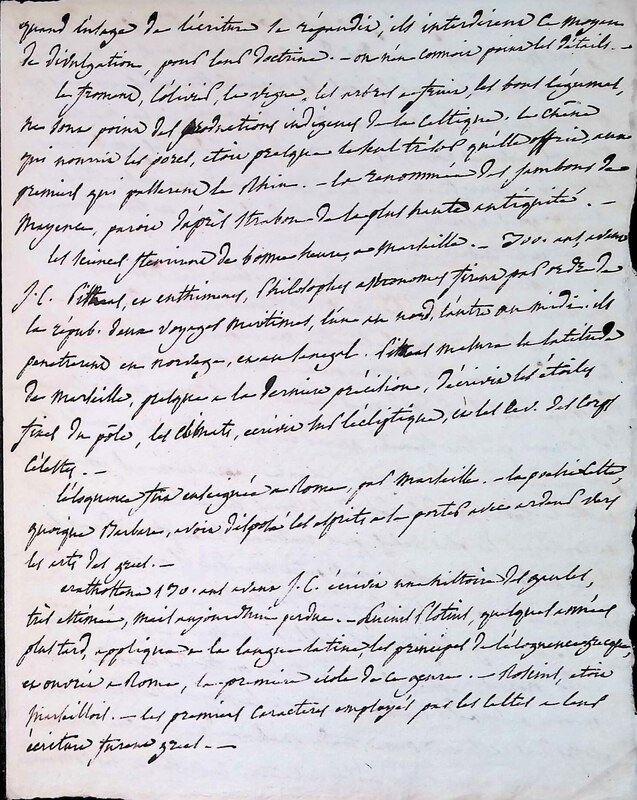 quand l'usage de l'écriture se répandit, ils interdirent ce moyen
de divulgation, pour leur doctrine. - on n'en connoit point les détails. -
le froment, l'olivier, la vigne, les arbres a fruit, les bons légumes,
ne sont point des productions indigènes de la Celtique. le chêne
qui nourrit les porcs, etoit presque le seul trésor qu'elle offrit aux
premiers qui passerent le Rhin. - la renommée des jambons de
Mayence, paroit d'après Strabon de la plus haute antiquité. -
les sciences fleurirent de bonne heure, a Marseille. - 300. ans avant
J.C. Pithéas, et Euthimenes, Philosophes astronomes firent par ordre de
la répub. deux voyages maritimes, l'un au nord, l'autre au midi. ils
penetrerent en norvège, et au Senegal. Pitheas mesura la latitude
de Marseille, presque a la derniere précision, décrivit les étoiles
fixes du pôle, les climats, ecrivit sur l'ecliptique, et les rev. des corps
célestes. -
l'éloquence fut enseignée a Rome, par Marseille. - la poesie Celte,
quoique Barbare, avoit disposé les esprits, a se porter avec ardeur vers
les arts des grecs. -
eratosthene 130. ans avant J.C. écrivit une histoire des gaules,
très estimée, mais aujourdhui perdue. - Lucius Plotius, quelques années
plus tard, appliqua a la langue latine, les principes de l'éloquence grecque,
et ouvrit a Rome, la premiere école de ce genre. - etoit
Marseillois. - les premiers caractères employés par les Celtes a leur
écriture, furent grecs. -